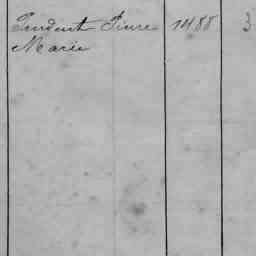 Pendent Pierre 1488 3
Marie